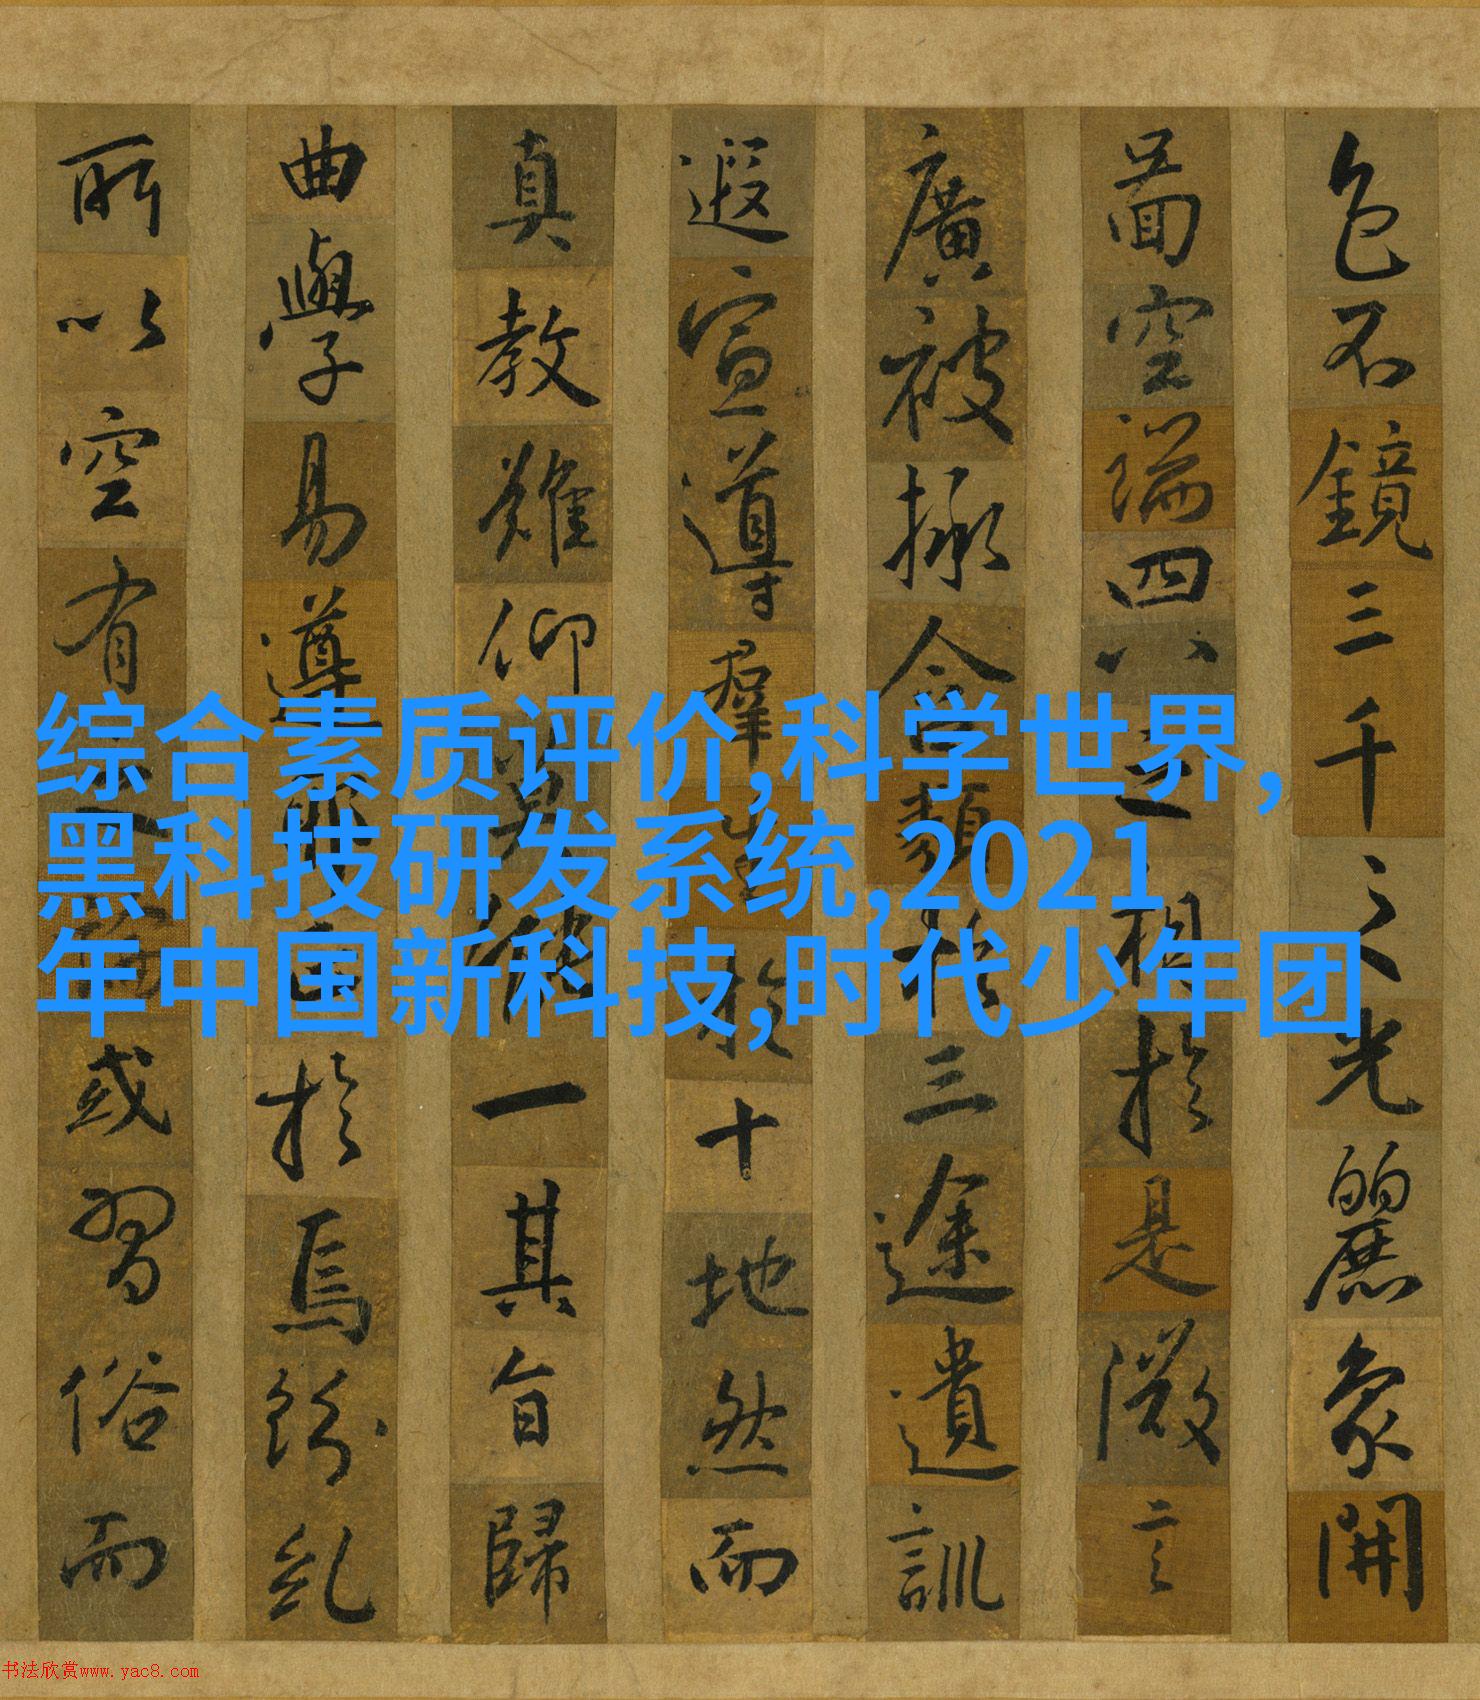 色不鏡三千之光麗象開
啚空端四八之相於是微言
廣被拯含類於三途遺訓
遐宣導羣生於十地然而
真教難仰莫能一其旨歸
曲學易遵耶正於焉紛糺
所以空有之論或習俗而
综合素质评价,科学世界,
黑科技研发系统,2021
年中国新科技,时代少年团
书法欣赏www.yac8.com